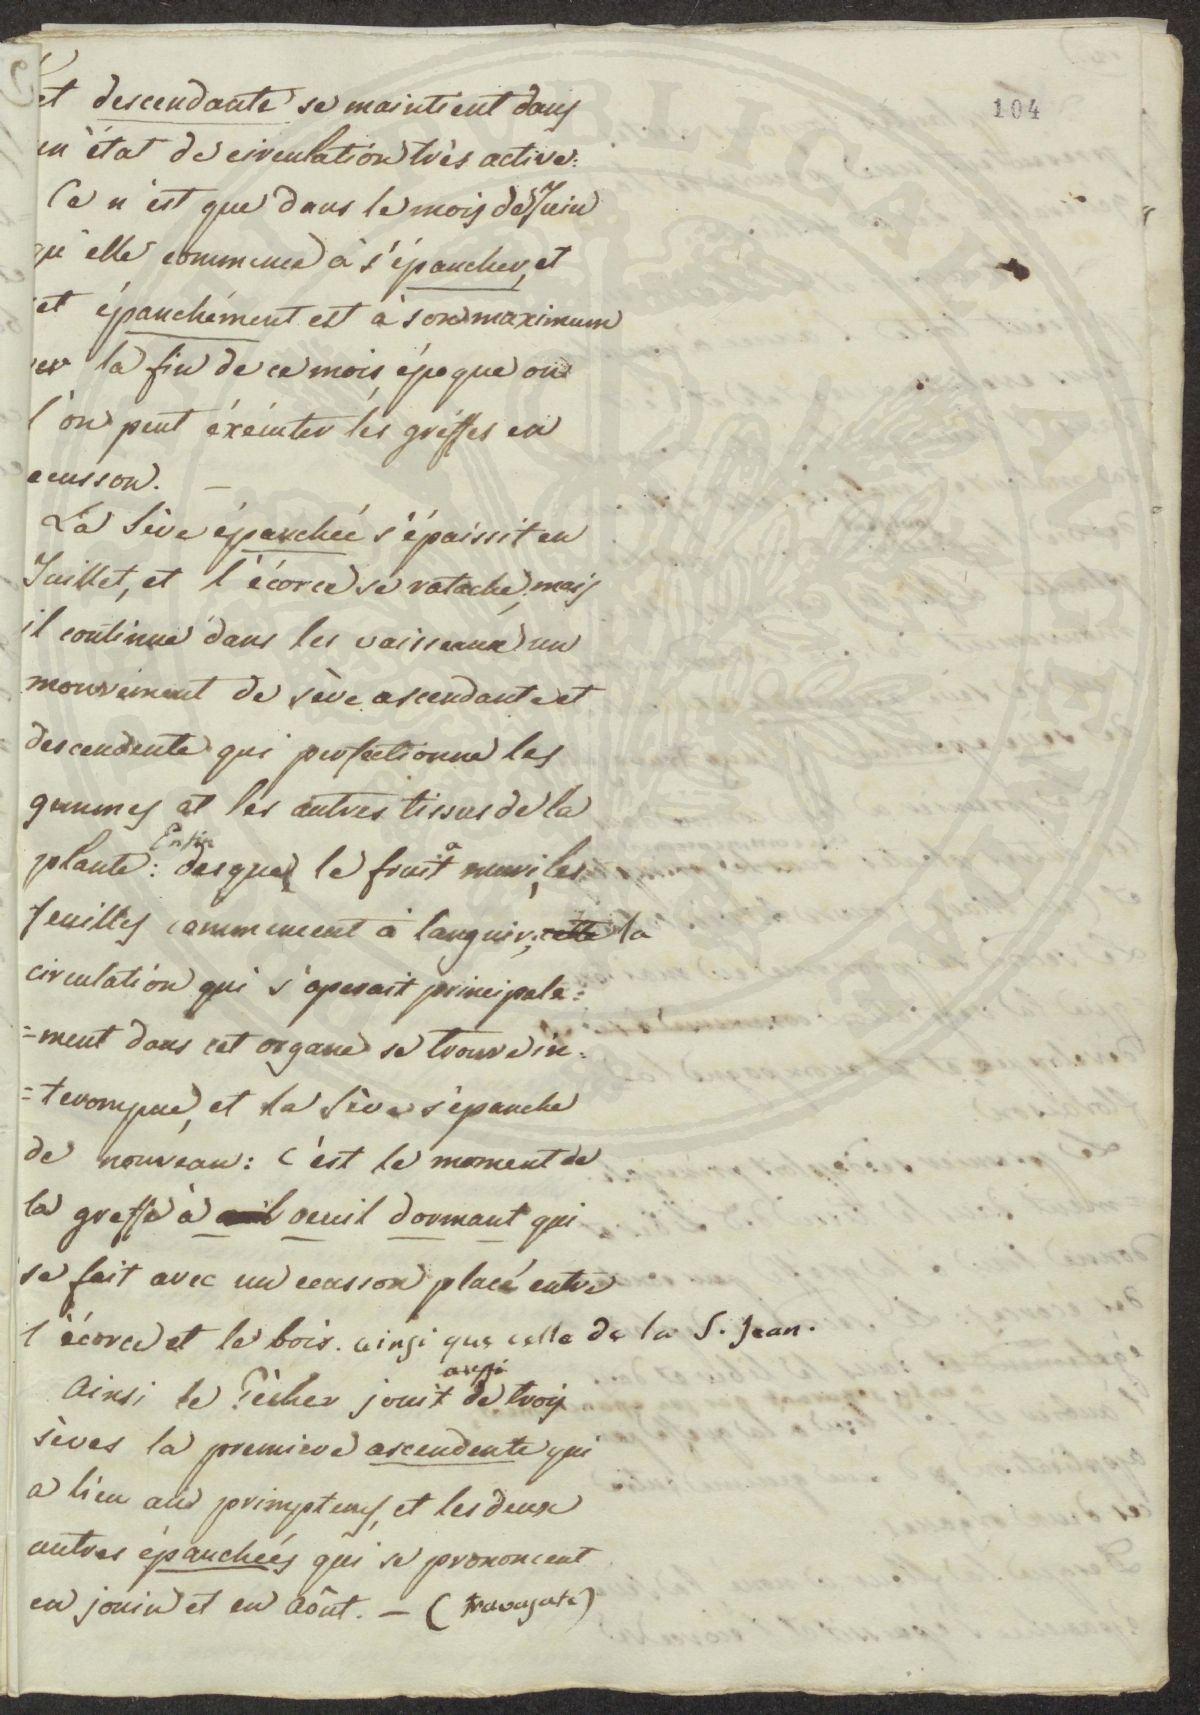 104
et descendante se maintient dans
un état de circulation très active.
Ce n'est que dans le mois de Juin
qu'elle commence à s'épancher, et
cet épanchément est à son maximum
ver la fin de ce mois, époque ou
l'on peut éxécuter lés gréffes en
ecusson. —
La Sève épanchée s'épaissit en
Juillet, et l'écorce se ratache, mais
il continue dans les vaisseaux un
mouvement de sève ascendante et
descendente qui perfectionne les
gemmes et les autres tissus de la
Enfin
plante: desque le fruit a muri, les
feuilles commencent à languir, cette la
circulation qui s'operait principale=
=ment dans cet organe se trouve in=
=terompue, et la Sève s'épanche
de nouveau: c'est le moment de
la greffe à oeuil dormant qui
se fait avec un ecusson placé entre
l'écorce et le bois. ainsi que celle de la S. Jean.
aussi
Ainsi le Pêcher jouit de trois
sèves la premiere ascendente qui
a lieu au primptems, et les deux
autres épanchées qui se prononcent
en jouin et en Août. — (travajate)